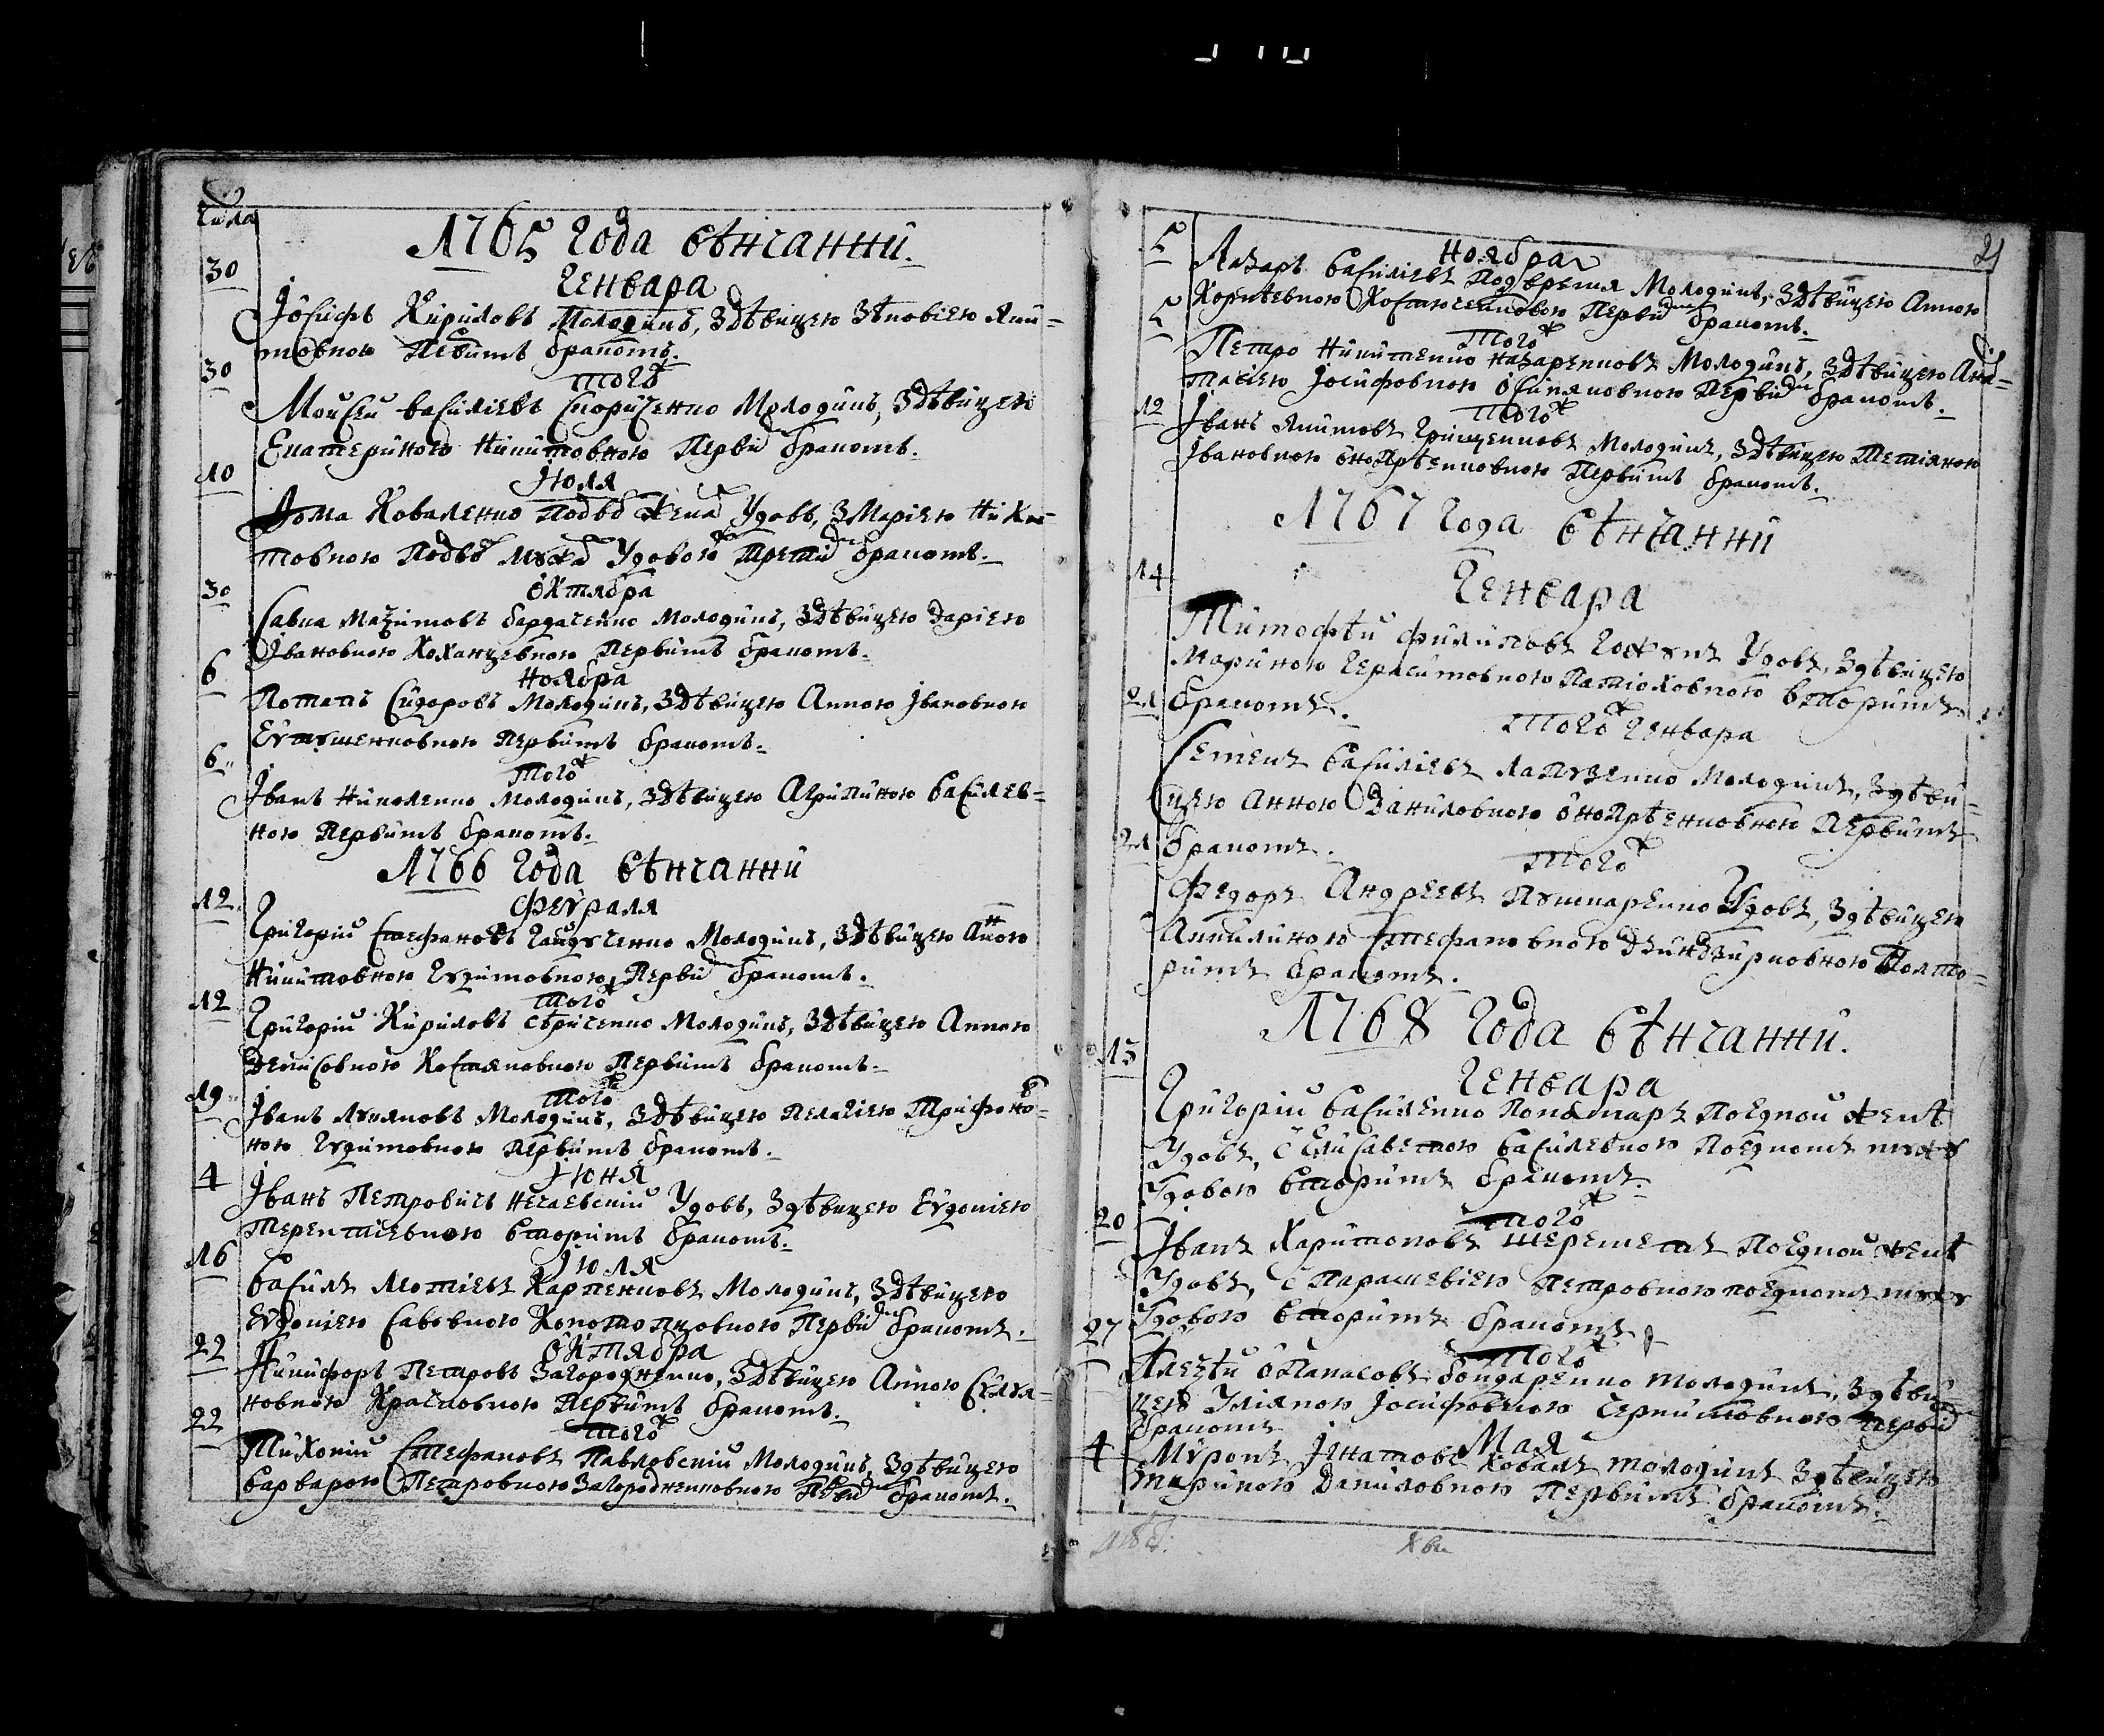 Числа
1765 года вѣнчанни.
30
Генвара
Іосифъ Кириловъ Молодикъ, Здѣвицею Зѣновіею Яки-
мовною Первимъ бракомъ.
30
Того ж
Моисеи Василіевъ Скориченко Молодикъ, Здѣвицею
Екатериною Никитовною Первим бракомъ.
10
Июля
Фома Коваленко Подво жена Удовъ, ЗМаріею Ники-
товною Подво мужа Удовою Третим бракомъ.
30
Октября
Савка Маѯимовъ Бардаченко Молодикъ, Здѣвицею Даріею
Івановною Коханцевною Первимъ бракомъ.
6
Ноября
Потапъ Сидоровъ Молодикъ, Здѣвицею Анною Івановною
Евтушенковною Первимъ бракомъ.
6
Того ж
Іванъ Николенко Молодикъ, Здѣвицею Агрипиною Василев-
ною Первимъ бракомъ.
1766 года вѣнчанни
12
Февраля
Григории Стефановъ Гайдученко Молодикъ, Здѣвицею Анною
Никитовною Первим бракомъ.
12
Того ж
Григории Кириловъ Сѣриченко Молодикъ, Здѣвицею Анною
Денисовною Костяковною Первимъ бракомъ.
19
Того ж
Іванъ Лукяновъ Молодикъ, Здѣвицею Пелагіею Трифонов-
ною Евдимовною Первимъ бракомъ.
4
Июня
Іванъ Петровичъ Нечаевскии Удовъ, Здѣвицею Евдокіею
Терентіевною Вторимъ бракомъ.
16
Июля
Василъ Мотіевъ Карпенковъ Молодикъ, Здѣвицею
Евдокіею Савовною Первим бракомъ.
22
Октября
Никифоръ Петровъ Загородненко, Здѣвицею Анною Силуя-
новною Первимъ бракомъ.
22
Того ж
Тихонии Стефановъ Павловскии Молодикъ, Здѣвицею
Варварою Петровною Загородненковною Первим бракомъ.
21
5
Ноября
Лазаръ Василіевъ Молодикъ, Здѣвицею Анною
Корнѣевною Первим бракомъ.
5
Того ж
Петро Никитенко Назаренковъ Молодикъ, Здѣвицею Анас-
тасіею Іосифовною Первим бракомъ.
12
Того ж
Іванъ Якимовъ Грищенковъ Молодикъ, Здѣвицею Тетіяною
Івановною Онопрѣенковною Первимъ бракомъ.
1767 года вѣнчанни
14
Генвара
Тимофѣи Филиповъ Удовъ, Здѣвицею
Мариною Герасимовною Вторимъ
бракомъ.
21
Того ж Генвара
Семенъ Василіевъ Лапузенко Молодикъ, Здѣви-
цею Анною Даниловною Онопрѣенковною Первимъ
бракомъ.
21
Того ж
Федоръ Андреевъ Пушкаренко Удовъ, Здѣвицею
Акилиною Стефановною Вто-
римъ бракомъ.
1768 года вѣнчанни.
13
Генвара
Григории Василенко Пономаръ Поедной женѣ
Удовъ, С Елисаветою Василевною Поедномъ мужу
Удовою Вторимъ бракомъ.
20
Того ж
Іванъ Харитоновъ Шереметъ Поедной женѣ
Удовъ, С Парасиевіею Петровною поедномъ мужу
Удовою Вторимъ бракомъ
27
Того ж
Алеѯѣи Опанасовъ Бондаренко молодикъ, Здѣви-
цею Уліяною Іосифовною Первим
бракомъ
4
Мая
Муронъ Ігнатовъ Ковалъ молодикъ Здѣвицею
Мариною Даниловною Первимъ бракомъ.